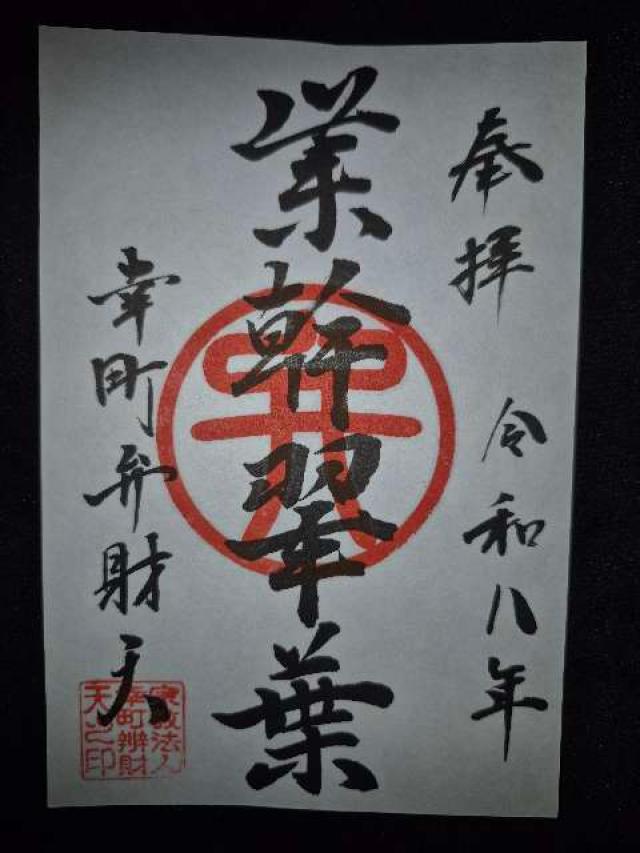 奉拝 令和八年
業幹翠葉
幸町弁財天
宗教法人
幸町辨財
天之印